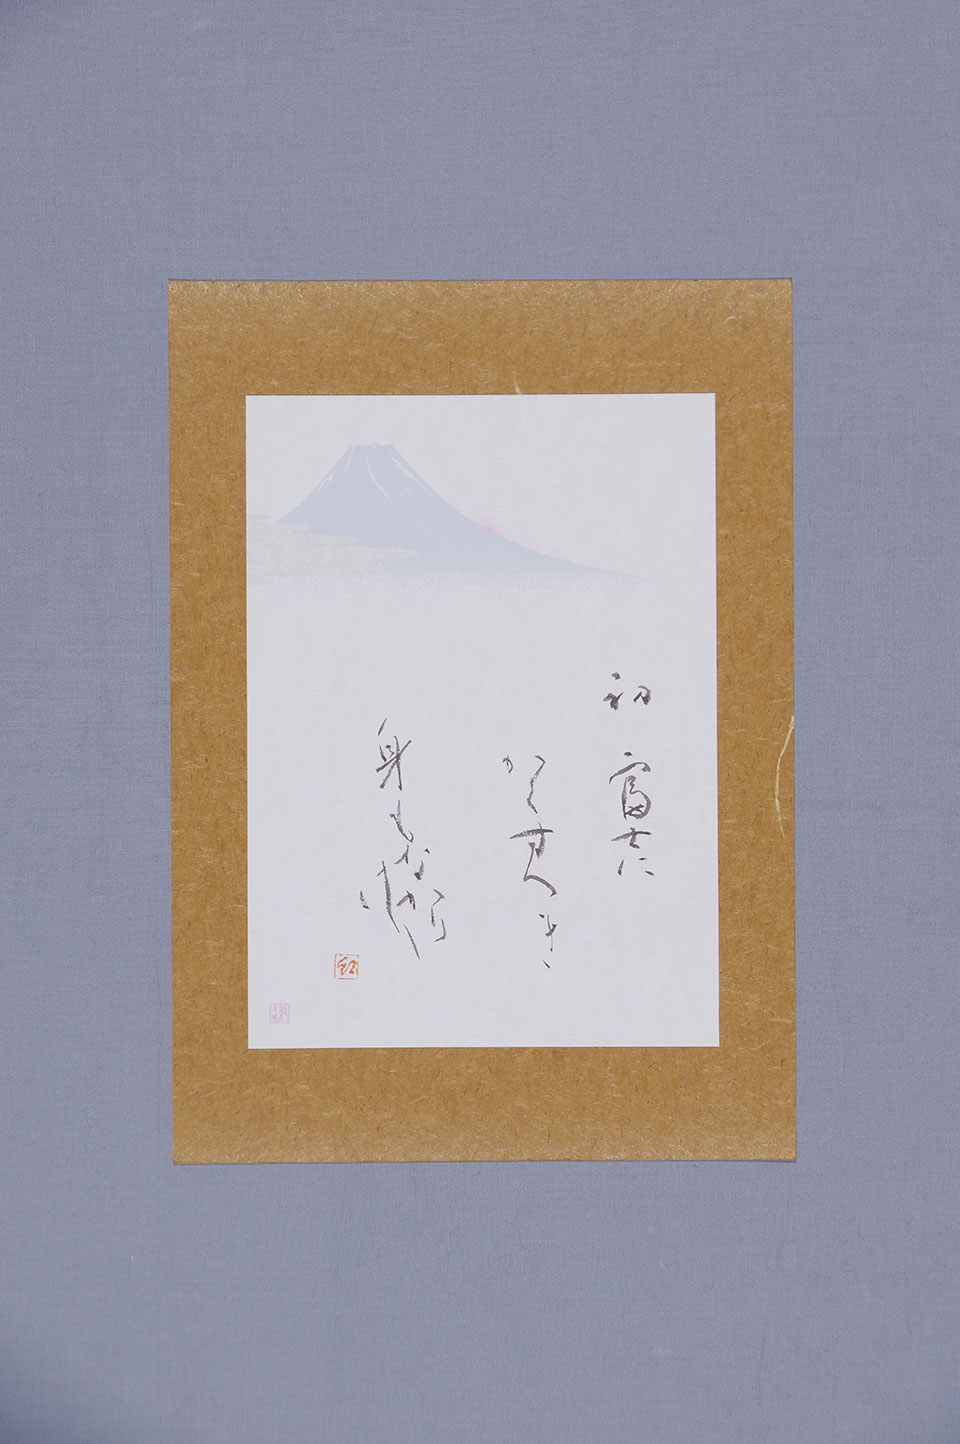 初富士に
かくすべき
身もなかりけり